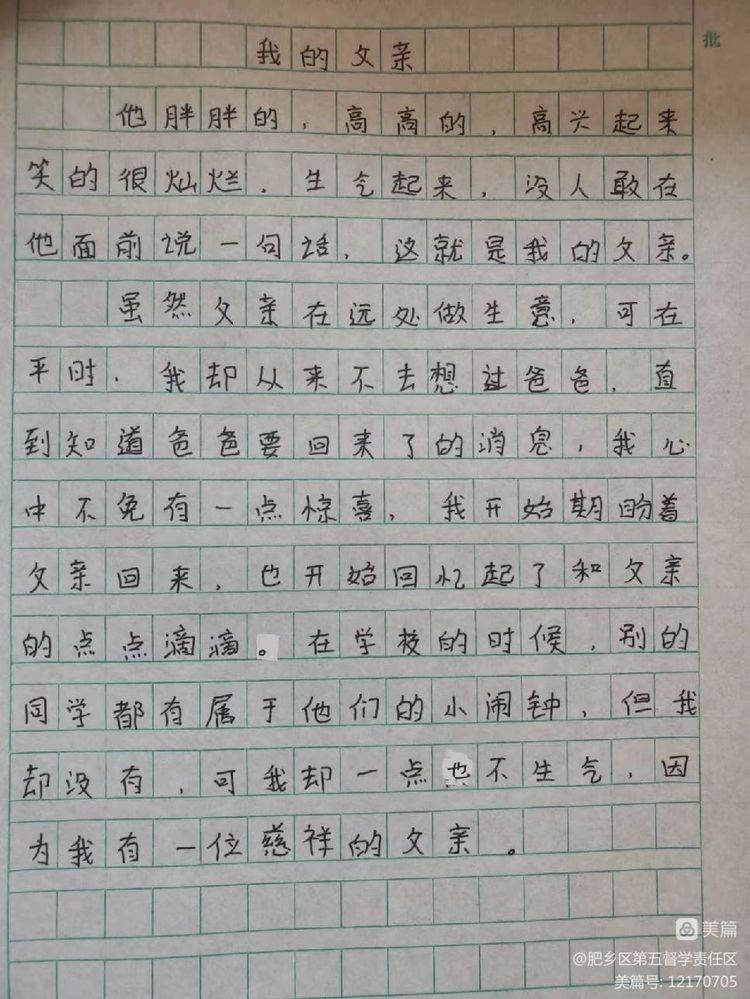 批
我的父亲
他胖胖的，高高的，高兴起来
笑的很灿烂，生气起来，没人敢在
他面前说一句话，这就是我的父亲。
虽然父亲在远处做生意，可在
平时，我却从来不去想过爸爸，直
到知道爸爸要回来了的消息，我心
中不免有一点惊喜，我开始期盼着
父亲回来，也开始回忆起了和父亲
的点点滴滴。在学校的时候，别的
同学都有属于他们的小闹钟，但我
却没有，可我却一点也不生气，因
为我有一位慈祥的父亲。
美篇
@肥乡区第五督学责任区
美篇号: 12170705